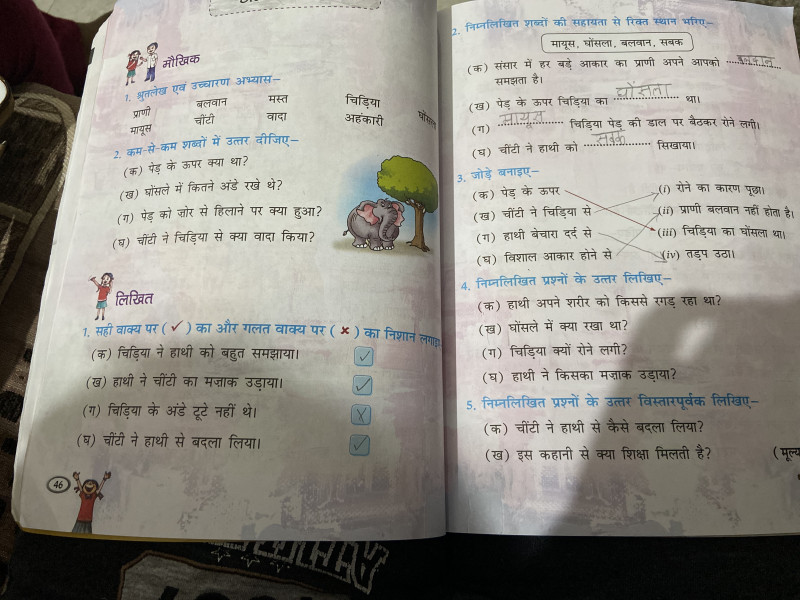 मौखिक
1. श्रुतलेख एवं उच्चारण अभ्यास–
प्राणी बलवान मस्त चिड़िया
मायूस चींटी वादा अहंकारी
2. कम-से-कम शब्दों में उत्तर दीजिए–
(क) पेड़ के ऊपर क्या था?
(ख) घोंसले में कितने अंडे रखे थे?
(ग) पेड़ को ज़ोर से हिलाने पर क्या हुआ?
(घ) चींटी ने चिड़िया से क्या वादा किया?
लिखित
1. सही वाक्य पर ( ✓ ) का और गलत वाक्य पर ( ✗ ) का निशान
(क) चिड़िया ने हाथी को बहुत समझाया। ✓
(ख) हाथी ने चींटी का मज़ाक उड़ाया। ✓
(ग) चिड़िया के अंडे टूटे नहीं थे। X
(घ) चींटी ने हाथी से बदला लिया। ✓
46
2. निम्नलिखित शब्दों की सहायता से रिक्त स्थान भरिए–
मायूस, घोंसला, बलवान, सबक
(क) संसार में हर बड़े आकार का प्राणी अपने आपको बलवान
समझता है।
(ख) पेड़ के ऊपर चिड़िया का घोंसला था।
(ग) मायूस चिड़िया पेड़ की डाल पर बैठकर रोने लगी।
(घ) चींटी ने हाथी को सबक सिखाया।
3. जोड़े बनाइए–
(क) पेड़ के ऊपर (i) रोने का कारण पूछा।
(ख) चींटी ने चिड़िया से (ii) प्राणी बलवान नहीं होता है।
(ग) हाथी बेचारा दर्द से (iii) चिड़िया का घोंसला था।
(घ) विशाल आकार होने से (iv) तड़प उठा।
4. निम्नलिखित प्रश्नों के उत्तर लिखिए–
(क) हाथी अपने शरीर को किससे रगड़ रहा था?
(ख) घोंसले में क्या रखा था?
(ग) चिड़िया क्यों रोने लगी?
(घ) हाथी ने किसका मज़ाक उड़ाया?
5. निम्नलिखित प्रश्नों के उत्तर विस्तारपूर्वक लिखिए–
(क) चींटी ने हाथी से कैसे बदला लिया?
(ख) इस कहानी से क्या शिक्षा मिलती है?